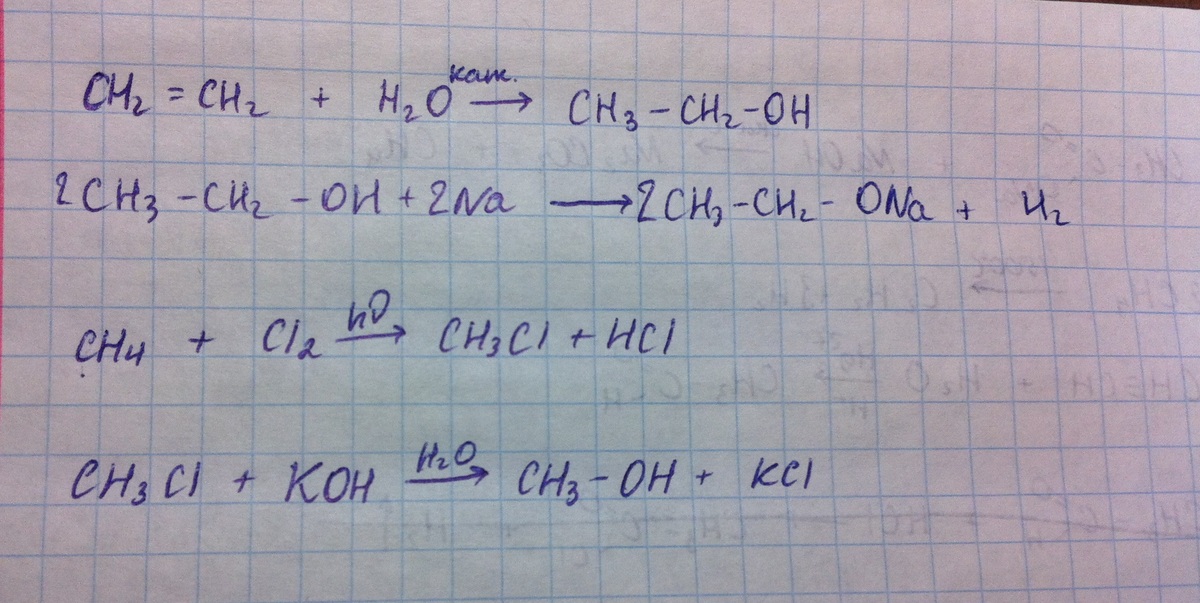 CH₂ = CH₂ + H₂O кат. ⟶ CH₃ – CH₂ – OH
2CH₃ – CH₂ – OH + 2Na ⟶ 2CH₃ – CH₂ – ONa + H₂
CH₄ + Cl₂ hν ⟶ CH₃Cl + HCl
CH₃Cl + KOH H₂O ⟶ CH₃ – OH + KCl